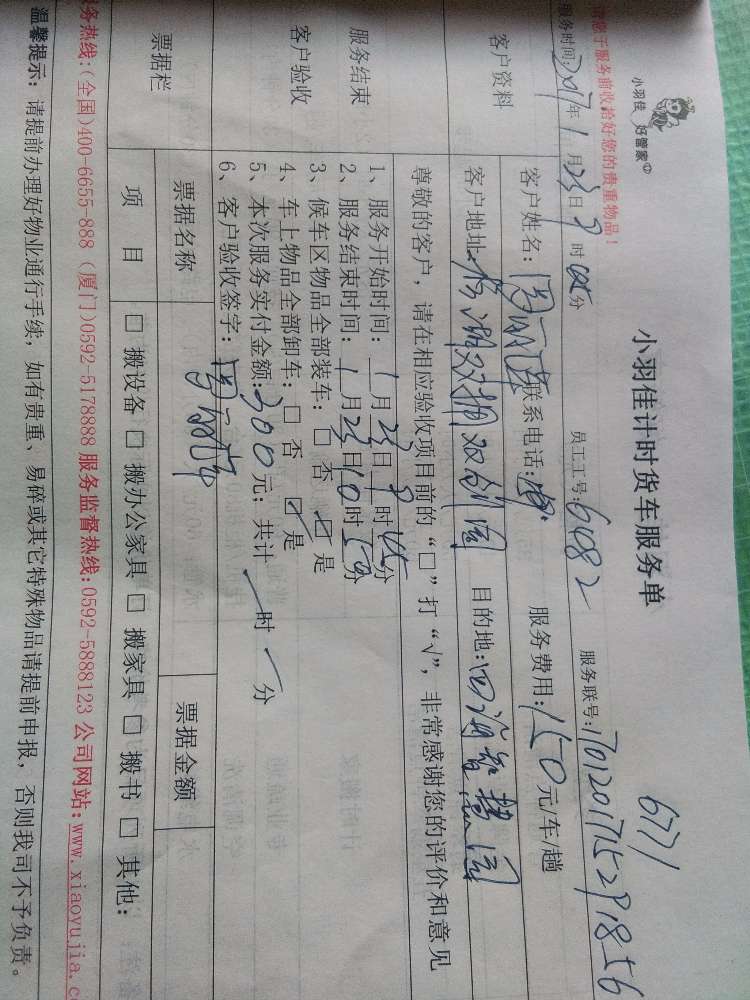 小羽佳 好管家
小羽佳计时货车服务单
6771
请您于服务前收拾好您的贵重物品！
服务时间：2017年1月23日9时05分 员工工号：6482 服务联号：
客户资料
客户姓名： 联系电话： 服务费用：150元/车/趟
客户地址： 目的地：
尊敬的客户，请在相应验收项目前的“□”打“√”，非常感谢您的评价和意见
服务结束
客户验收
1、服务开始时间：1月23日9时05分
2、服务结束时间：1月23日10时50分
3、候车区物品全部装车：□ 否 ☑ 是
4、车上物品全部卸车：□ 否 ☑ 是
5、本次服务实付金额：300元；共计 时 分
6、客户验收签字：
票据栏
票据名称 票据金额
项 目 □ 搬设备 □ 搬办公家具 □ 搬家具 □ 搬书 □ 其他：
服务热线：(全国)400-6655-888 (厦门)0592-5178888 服务监督热线：0592-5888123 公司网站：www.xiaoyujia.c
温馨提示：请提前办理好物业通行手续，如有贵重、易碎或其它特殊物品请提前申报，否则我司不予负责。